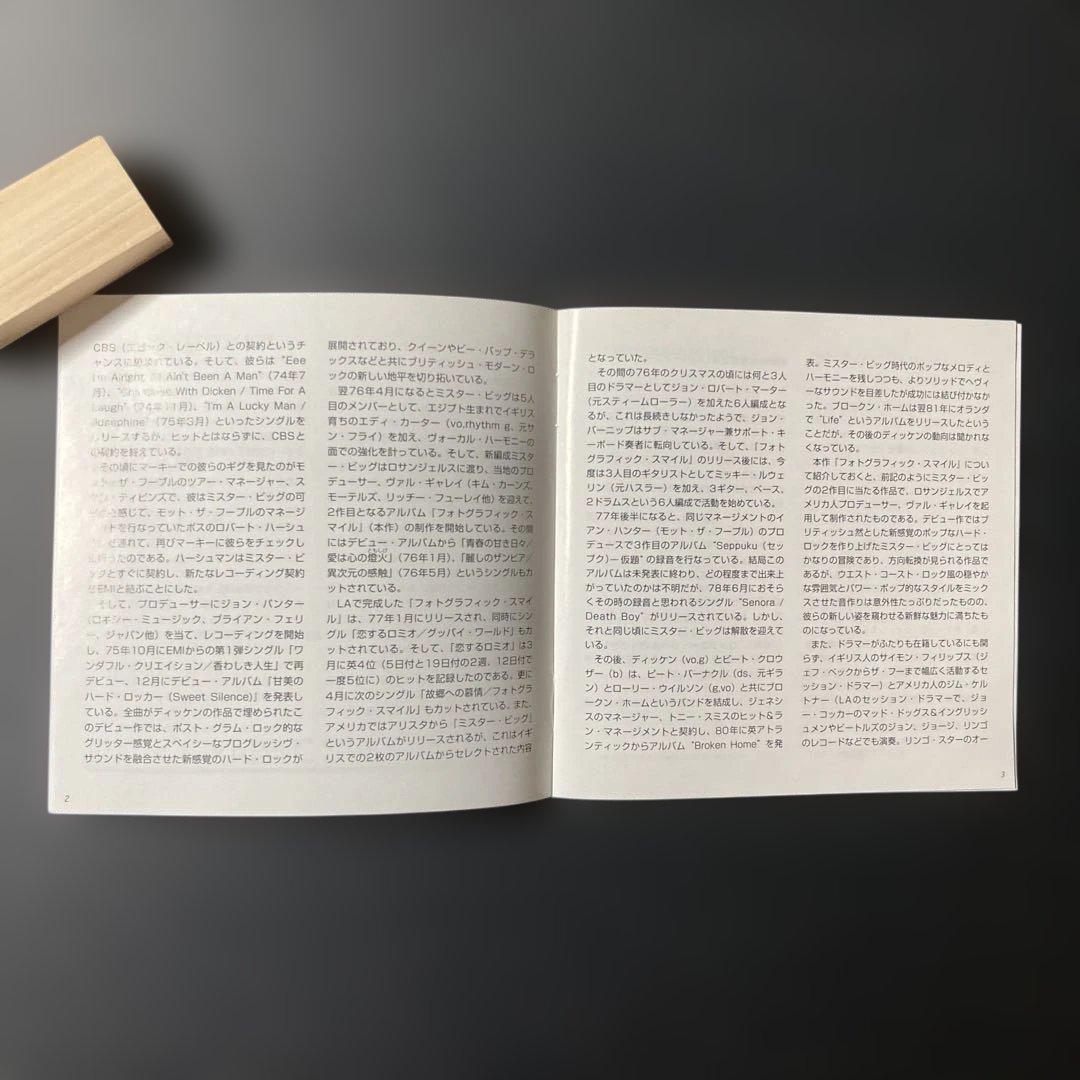 CBS（エピック・レーベル）との契約というチ
ャンスに恵まれている。そして、彼らは“Eee
I'm Alright / I Ain't Been A Man”（74年7
月）、“Christmas With Dicken / Time For A
Laugh”（74年11月）、“I'm A Lucky Man /
Josephine”（75年3月）といったシングルを
リリースするが、ヒットとはならずに、CBSと
の契約を終えている。
その頃にマーキーでの彼らのギグを見たのがモ
ット・ザ・フープルのツアー・マネージャー、ス
・ティビンズで、彼はミスター・ビッグの可
を感じて、モット・ザ・フープルのマネージ
トを行なっていたボスのロバート・ハーシュ
を連れて、再びマーキーに彼らをチェックし
行うたのである。ハーシュマンはミスター・ビ
ッグとすぐに契約し、新たなレコーディング契約
をEMIと結ぶことにした。
そして、プロデューサーにジョン・パンター
（ロキシー・ミュージック、ブライアン・フェリ
ー、ジャパン他）を当て、レコーディングを開始
し、75年10月にEMIからの第1弾シングル「ワ
ンダフル・クリエイション／香わしき人生」で再
デビュー、12月にデビュー・アルバム『甘美の
ハード・ロッカー（Sweet Silence）』を発表し
ている。全曲がディッケンの作品で埋められたこ
のデビュー作では、ポスト・グラム・ロック的な
グリッター感覚とスペイシーなプログレッシヴ・
サウンドを融合させた新感覚のハード・ロックが
2
展開されており、クイーンやビー・バップ・デラ
ックスなどと共にブリティッシュ・モダーン・ロ
ックの新しい地平を切り拓いている。
翌76年4月になるとミスター・ビッグは5人
目のメンバーとして、エジプト生まれでイギリス
育ちのエディ・カーター（vo,rhythm g、元サ
ン・フライ）を加え、ヴォーカル・ハーモニーの
面での強化を計っている。そして、新編成ミスタ
ー・ビッグはロサンジェルスに渡り、当地のプロ
デューサー、ヴァル・ギャレイ（キム・カーンズ、
モーテルズ、リッチー・フューレイ他）を迎えて、
2作目となるアルバム『フォトグラフィック・ス
マイル』（本作）の制作を開始している。その間
にはデビュー・アルバムから「青春の甘き日々／
愛は心の燈火ともしび」（76年1月）、「麗しのザンビア／
異次元の感触」（76年5月）というシングルもカ
ットされている。
LAで完成した『フォトグラフィック・スマイ
ル』は、77年1月にリリースされ、同時にシン
グル「恋するロミオ／グッバイ・ワールド」もカ
ットされている。そして、「恋するロミオ」は3
月に英4位（5日付と19日付の2週、12日付で
一度5位に）のヒットを記録したのである。更に
4月に次のシングル「故郷への慕情／フォトグラ
フィック・スマイル」もカットされている。また、
アメリカではアリスタから『ミスター・ビッグ』
というアルバムがリリースされるが、これはイギ
リスでの2枚のアルバムからセレクトされた内容
となっていた。
その間の76年のクリスマスの頃には何と3人
目のドラマーとしてジョン・ロバート・マーター
（元スティームローラー）を加えた6人編成とな
るが、これは長続きしなかったようで、ジョン・
バーニップはサブ・マネージャー兼サポート・キ
ーボード奏者に転向している。そして、『フォト
グラフィック・スマイル』のリリース後には、今
度は3人目のギタリストとしてミッキー・ルウェ
リン（元ハスラー）を加え、3ギター、ベース、
2ドラムスという6人編成で活動を始めている。
77年後半になると、同じマネージメントのイ
アン・ハンター（モット・ザ・フープル）のプロ
デュースで3作目のアルバム“Seppuku（セッ
プク）―仮題”の録音を行なっている。結局この
アルバムは未発表に終わり、どの程度まで出来上
がっていたのかは不明だが、78年6月におそら
くその時の録音と思われるシングル“Senora /
Death Boy”がリリースされている。しかし、
それと同じ頃にミスター・ビッグは解散を迎えて
いる。
その後、ディッケン（vo,g）とピート・クロウ
ザー（b）は、ピート・バーナクル（ds、元ギラ
ン）とローリー・ウイルソン（g,vo）と共にブロ
ークン・ホームというバンドを結成し、ジェネシ
スのマネージャー、トニー・スミスのヒット＆ラ
ン・マネージメントと契約し、80年に英アトラ
ンティックからアルバム“Broken Home”を発
表。ミスター・ビッグ時代のポップなメロディと
ハーモニーを残しつつも、よりソリッドでヘヴィ
ーなサウンドを目差したが成功には結び付かなか
った。ブロークン・ホームは翌81年にオランダ
で“Life”というアルバムをリリースしたという
ことだが、その後のディッケンの動向は聞かれな
くなっている。
本作『フォトグラフィック・スマイル』につい
て紹介しておくと、前記のようにミスター・ビッ
グの2作目に当たる作品で、ロサンジェルスでア
メリカ人プロデューサー、ヴァル・ギャレイを起
用して制作されたものである。デビュー作ではブ
リティッシュ然とした新感覚のポップなハード・
ロックを作り上げたミスター・ビッグにとっては
かなりの冒険であり、方向転換が見られる作品で
あるが、ウエスト・コースト・ロック風の穏やか
な雰囲気とパワー・ポップ的なスタイルをミック
スさせた音作りは意外性たっぷりだったものの、
彼らの新しい姿を窺わせる新鮮な魅力に満ちたも
のになっている。
また、ドラマーがふたりも在籍しているにも関
らず、イギリス人のサイモン・フィリップス（ジ
ェフ・ベックからザ・フーまで幅広く活動するセ
ッション・ドラマー）とアメリカ人のジム・ケル
トナー（LAのセッション・ドラマーで、ジョ
ー・コッカーのマッド・ドッグス＆イングリッシ
ュメンやビートルズのジョン、ジョージ、リンゴ
のレコードなどでも演奏。リンゴ・スターのオー
3